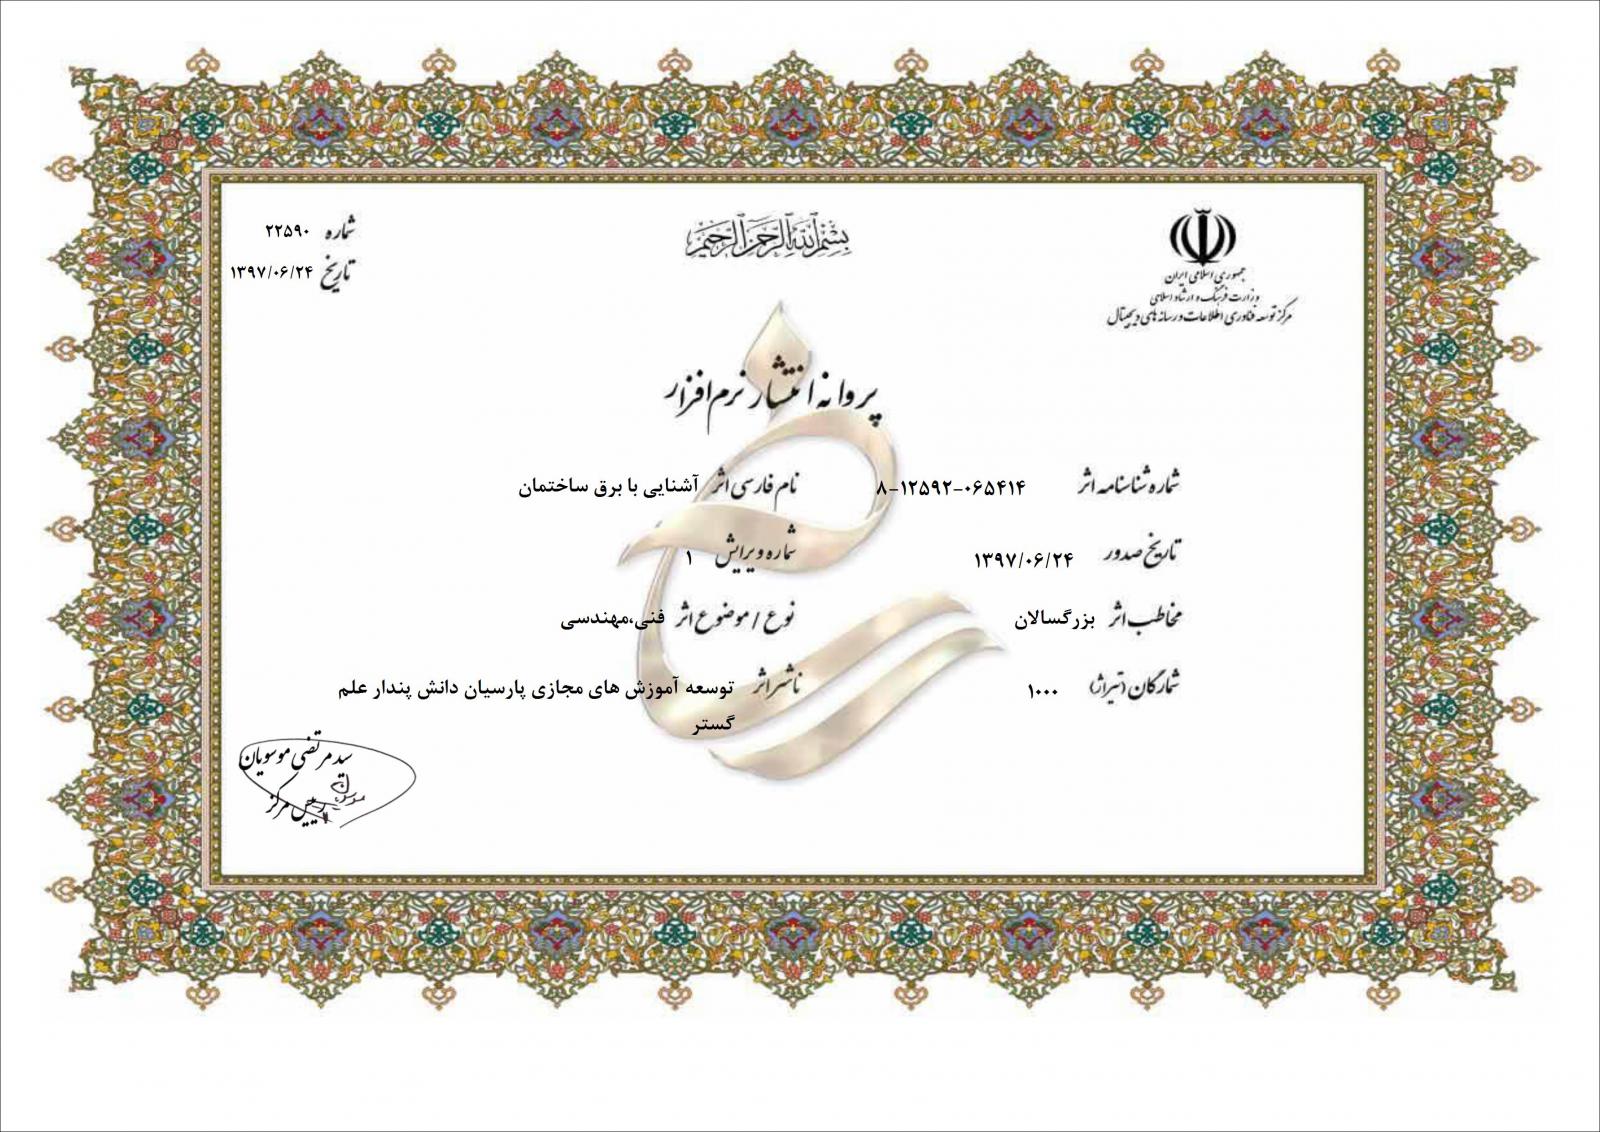 بسم الله الرحمن الرحیم
جمهوری اسلامی ایران
وزارت فرهنگ و ارشاد اسلامی
مرکز توسعه فناوری اطلاعات و رسانه های دیجیتال
شماره ۲۲۵۹۰
تاریخ ۱۳۹۷/۰۶/۲۴
پروانه انتشار نرم افزار
شماره شناسنامه اثر ۸-۱۲۵۹۲-۰۶۵۴۱۴
نام فارسی اثر آشنایی با برق ساختمان
تاریخ صدور ۱۳۹۷/۰۶/۲۴
شماره ویرایش ۱
مخاطب اثر بزرگسالان
نوع / موضوع اثر فنی،مهندسی
شمارگان (تیراژ) ۱۰۰۰
ناشر اثر توسعه آموزش های مجازی پارسیان دانش پندار علم
گستر
سید مرتضی موسویان
رییس مرکز